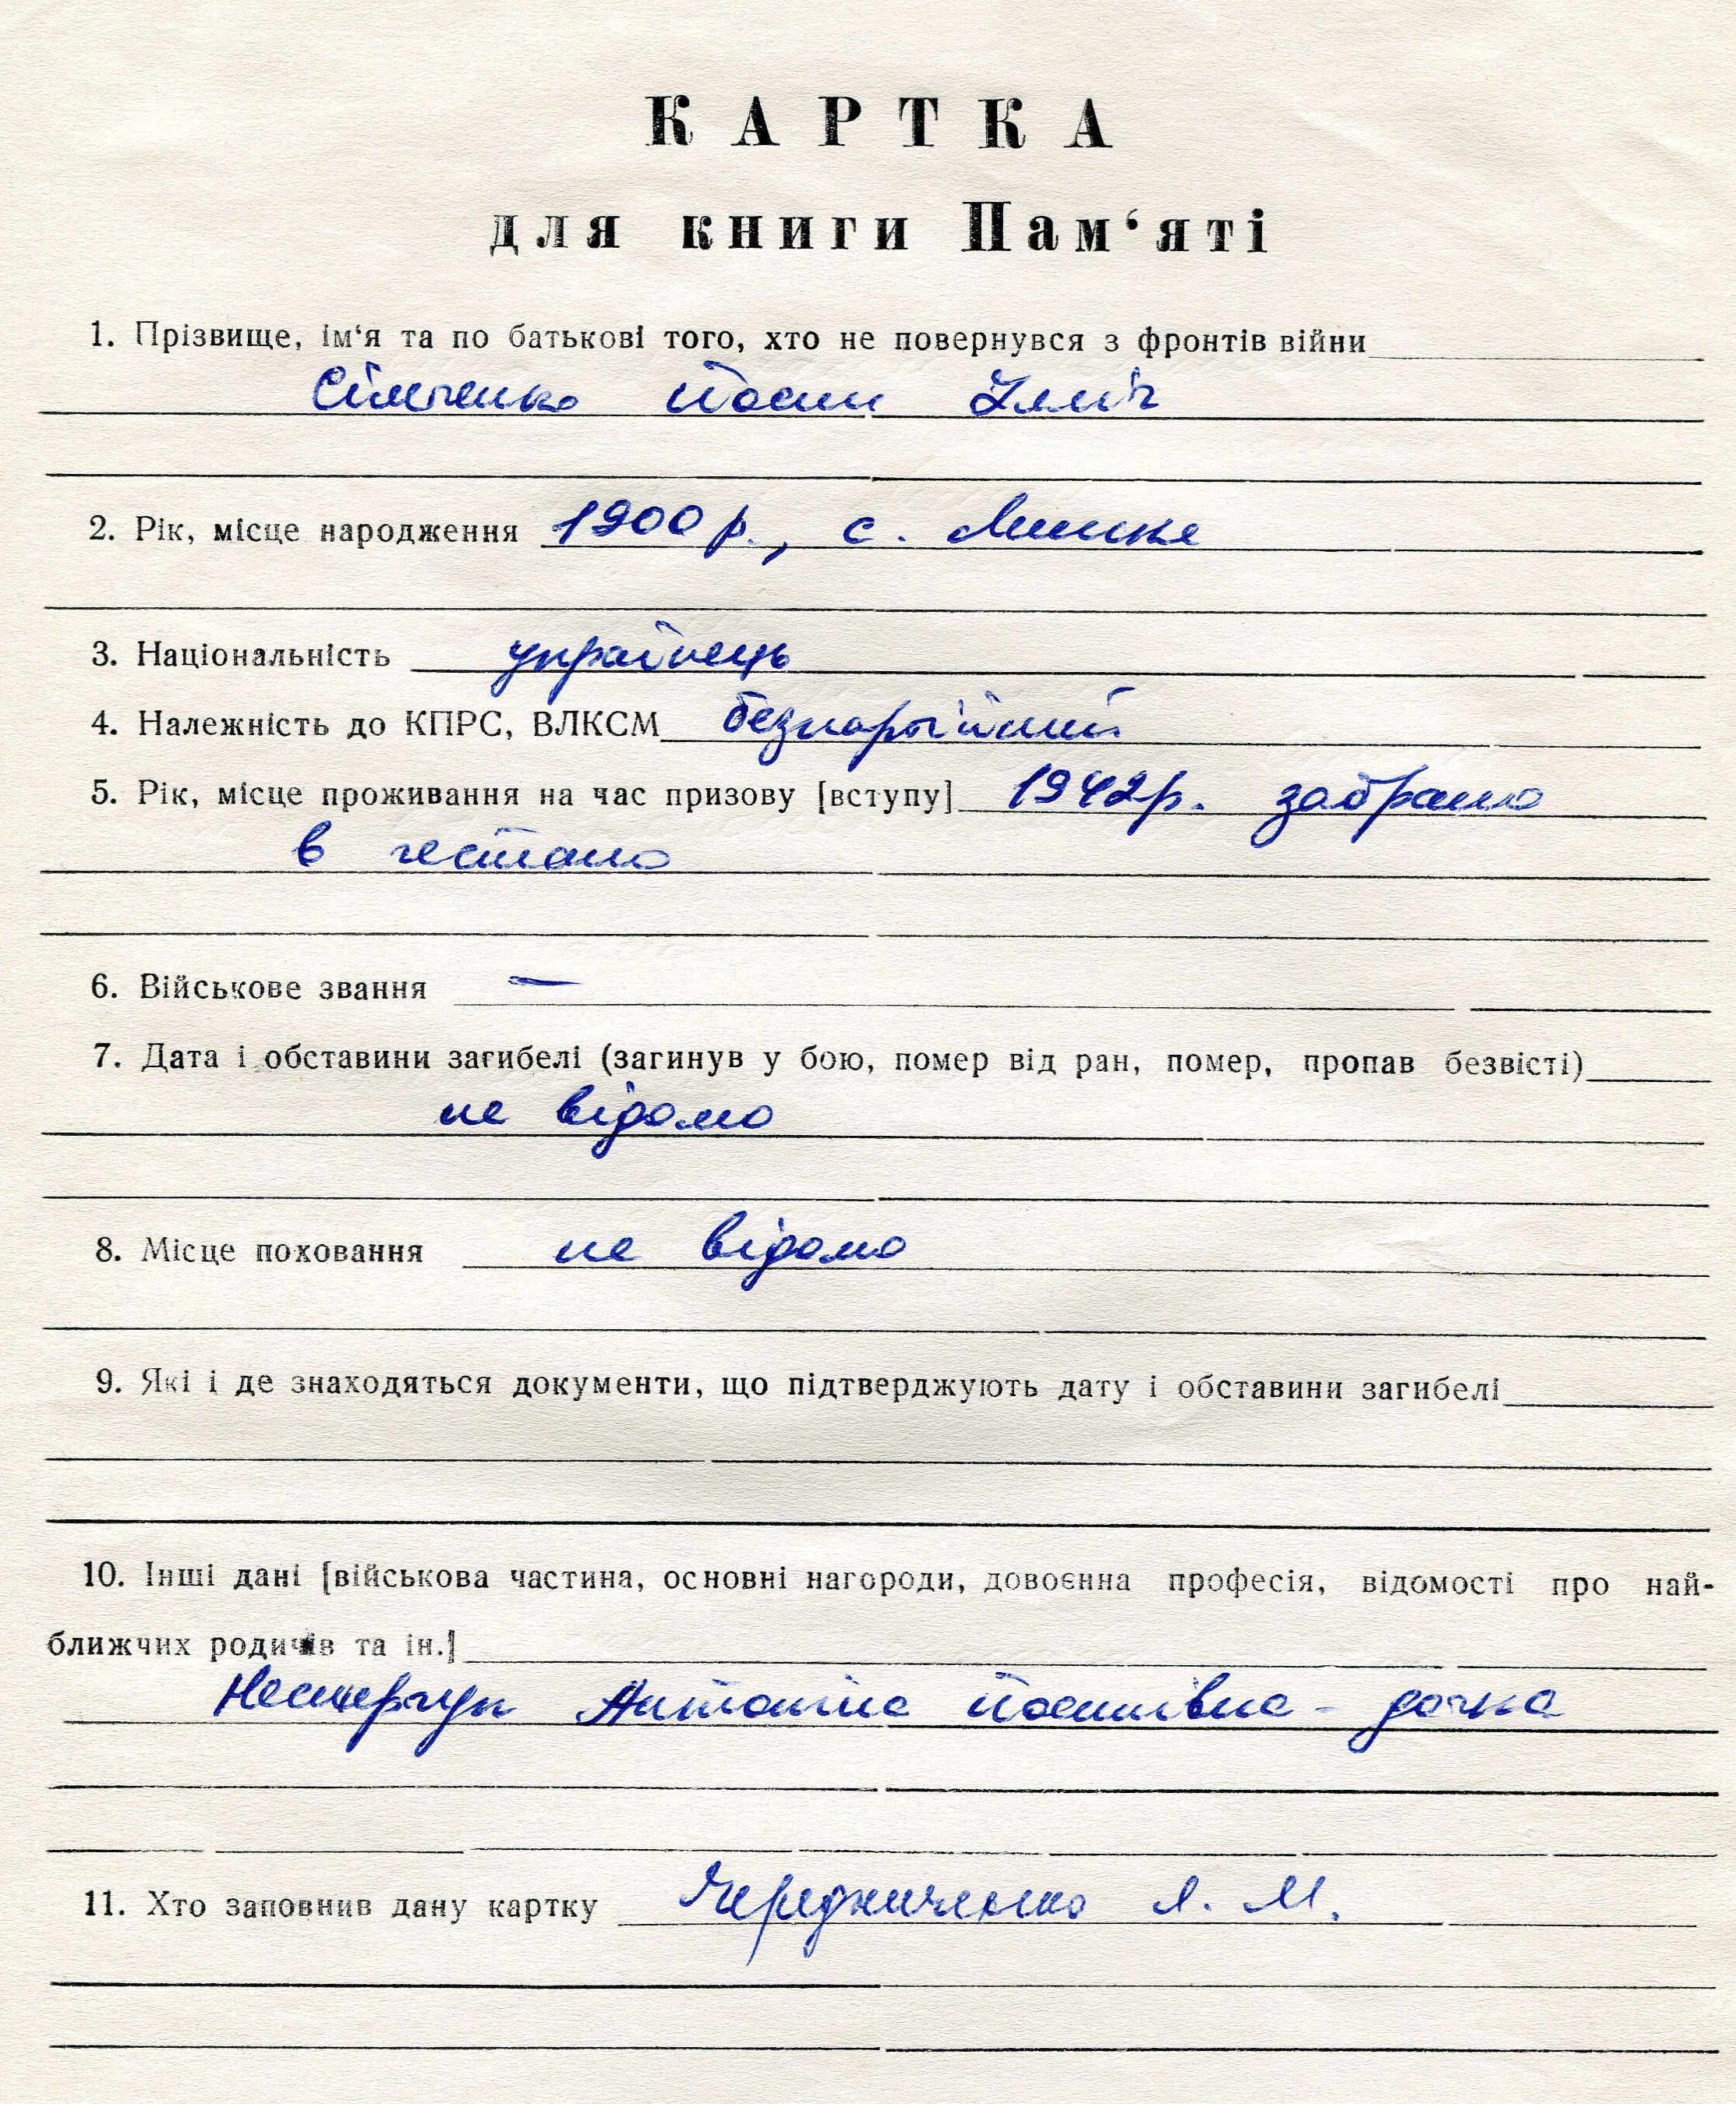 КАРТКА
для книги Пам‘яті
1. Прізвище, ім‘я та по батькові того, хто не повернувся з фронтів війни
Йосип Ілліч
2. Рік, місце народження 1900 р., с. Минине
3. Національність українець
4. Належність до КПРС, ВЛКСМ безпартійний
5. Рік, місце проживання на час призову [вступу] 1942 р. забрано
в гестапо
6. Військове звання —
7. Дата і обставини загибелі (загинув у бою, помер від ран, помер, пропав безвісті)
не відомо
8. Місце поховання не відомо
9. Які і де знаходяться документи, що підтверджують дату і обставини загибелі
10. Інші дані [військова частина, основні нагороди, довоєнна професія, відомості про най-
ближчих родичів та ін.]
Нестерчук Антоніна Йосипівна - дочка
11. Хто заповнив дану картку Чередниченко Л. М.